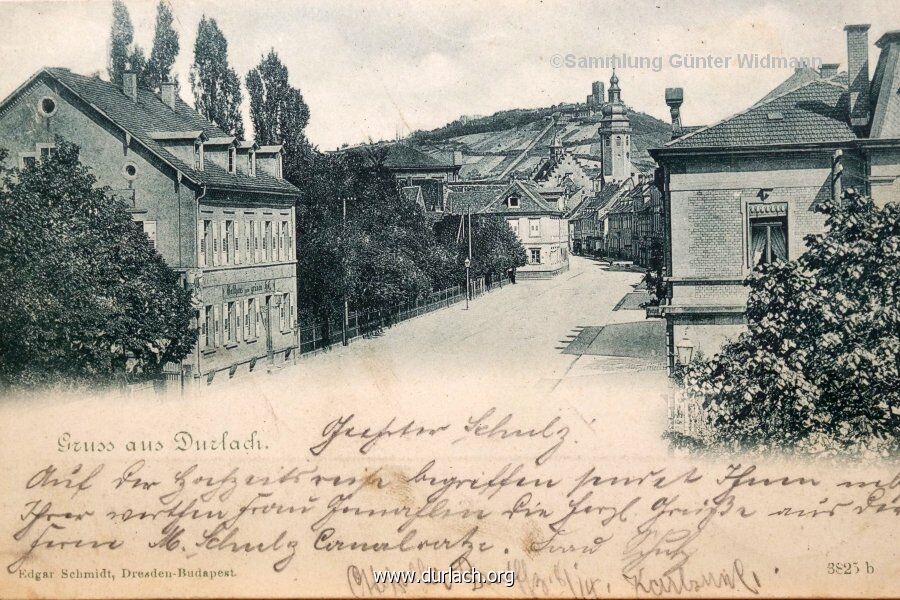 ©Sammlung Günter Widmann
Gasthaus zum grünen Hof
Gruss aus Durlach.
Geehrter Schulz!
Auf der Hochzeitsreise begriffen sendet Ihnen neb
Ihrer werthen Frau Gemahlin die herzl. Grüße aus
Herrn M. Schulz Frau
Edgar Schmidt, Dresden-Budapest.
www.durlach.org
3825 b